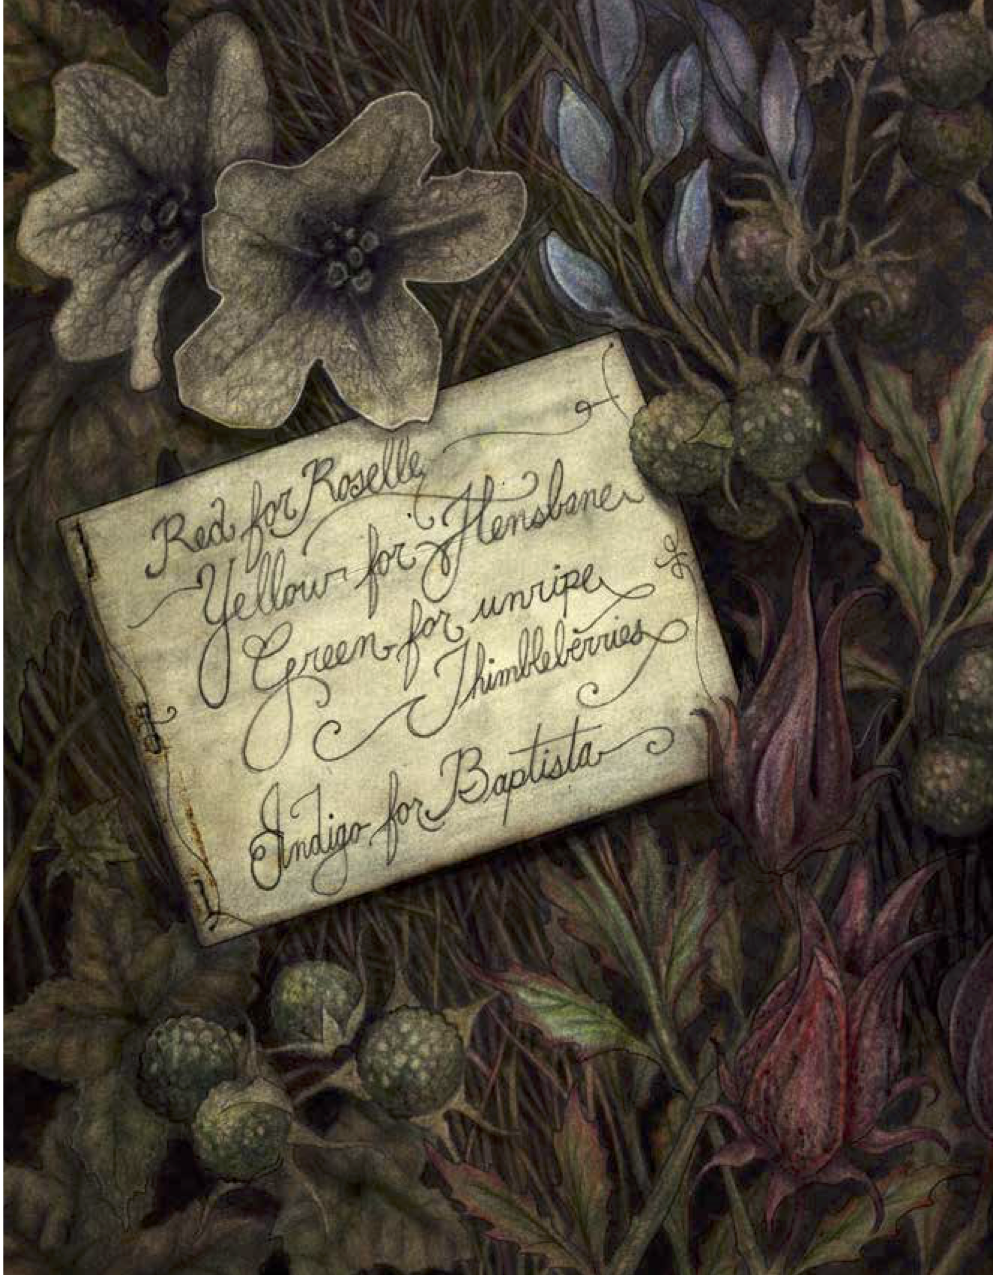 Red for Roselle
Yellow for Hensbane
Green for unripe
Thimbleberries
Indigo for Baptista